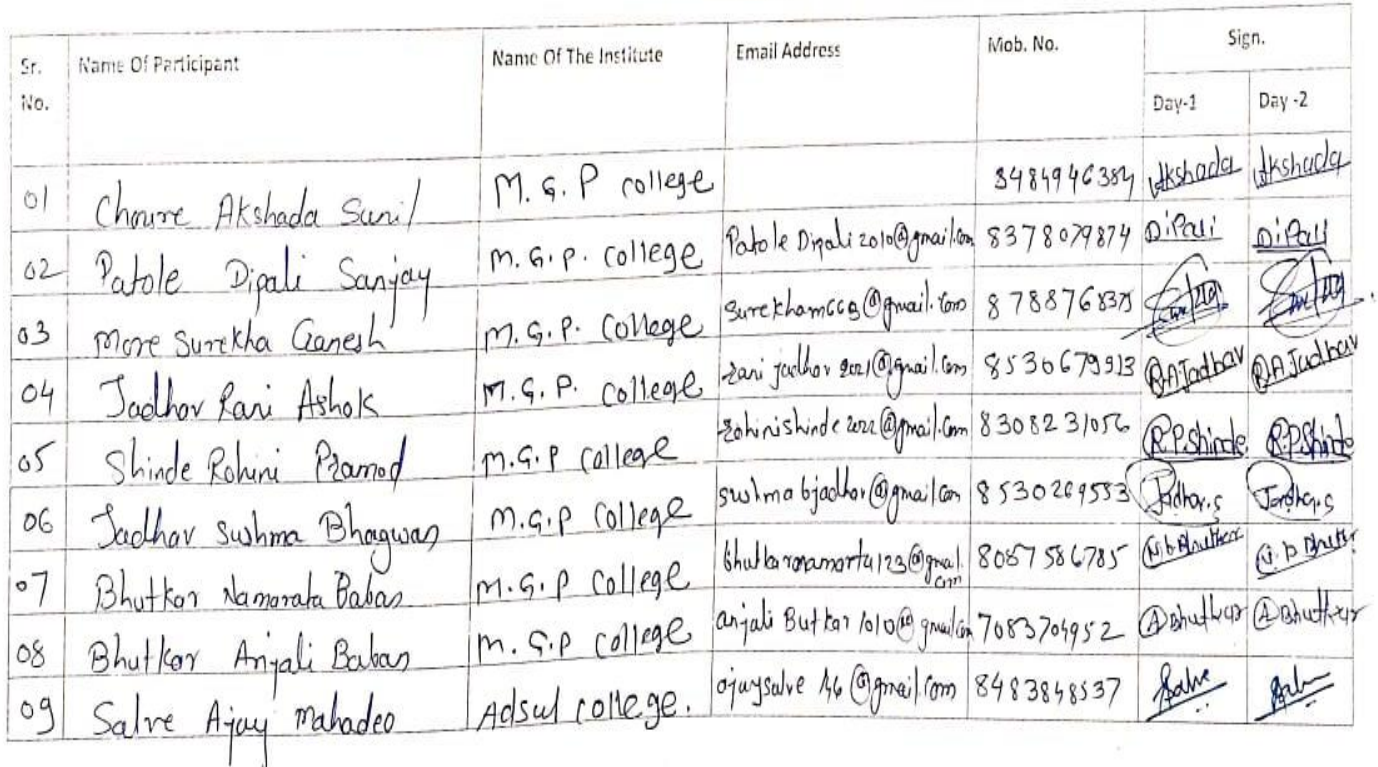 Sr. No. Name Of Participant Name Of The Institute Email Address Mob. No. Sign.
Day-1 Day -2
01 Choure Akshada Sunil M. G. P college 8484946384 Akshada Akshada
02 Patole Dipali Sanjay M. G. P. College PatoleDipali2010@gmail.com 8378079874 DiPali DiPali
03 More Surekha Ganesh M. G. P. College 8788768375
04 Jadhav Rani Ashok M. G. P. college ranijadhav2021@gmail.com 8530679913 R.A Jadhav R.A Jadhav
05 Shinde Rohini Pramod M.G.P College rohinishinde2022@gmail.com 8308231056 R.P.Shinde R.P.Shinde
06 Jadhav Sushma Bhagwan M.G.P College sushmabjadhav@gmail.com 8530269553 Jadhav.s Jadhav.s
07 Bhutkar Namarata Baban M.G.P College 8087586785 N.b Bhutkar
08 Bhutkar Anjali Baban M. G.P College anjali Butkar 1010@gmail.com 7083704952 A Bhutkar A Bhutkar
09 Salve Ajay Mahadeo Adsul college. 8483848537 Salve